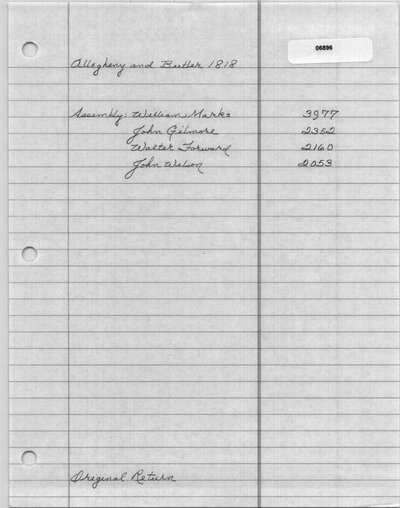 06896
Allegheny and Butler 1818
Assembly: William Marks 3977
John Gilmore 2352
Walter Forward 2160
John Wilson 2053
Original Return